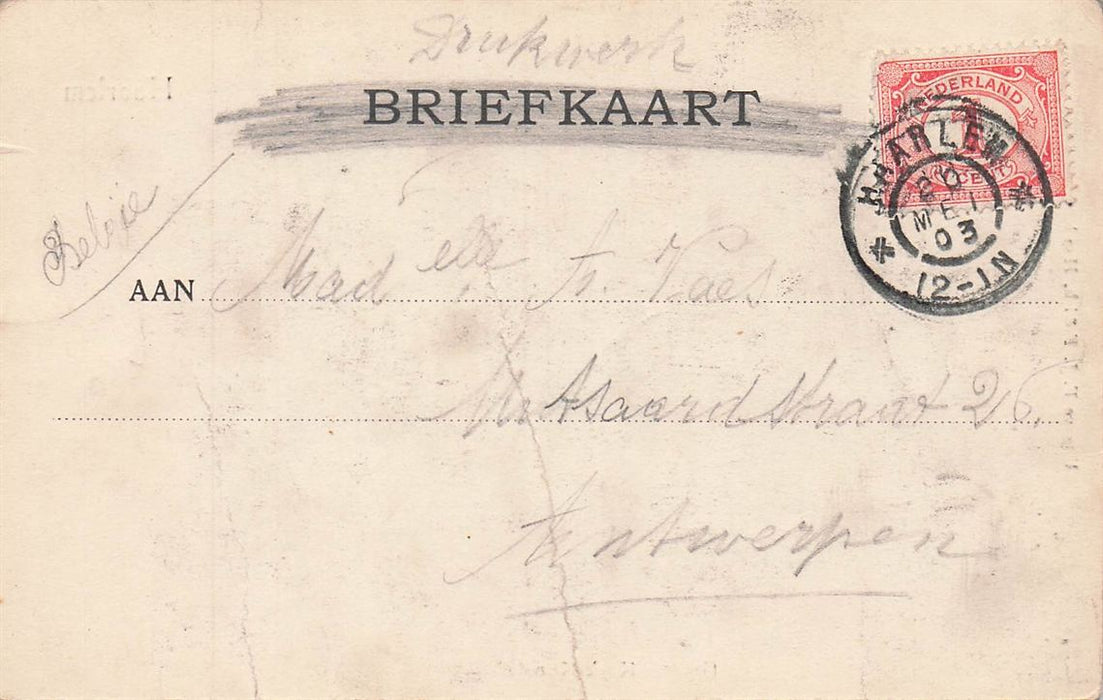 Drukwerk
BRIEFKAART
NEDERLAND
1
CENT
HAARLEM
20
MEI
03
12-1N
België
AAN Mad elle A. Vaes
straat 26.
Antwerpen
Haarlem